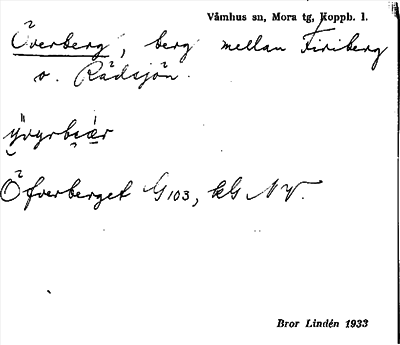 Våmhus sn, Mora tg, Koppb. l.
Överberg, berg mellan Firiberg
o. Rädsjön.
ÿvȩrbiær
Öfverberget G103, kG NV.
Bror Lindén 1933